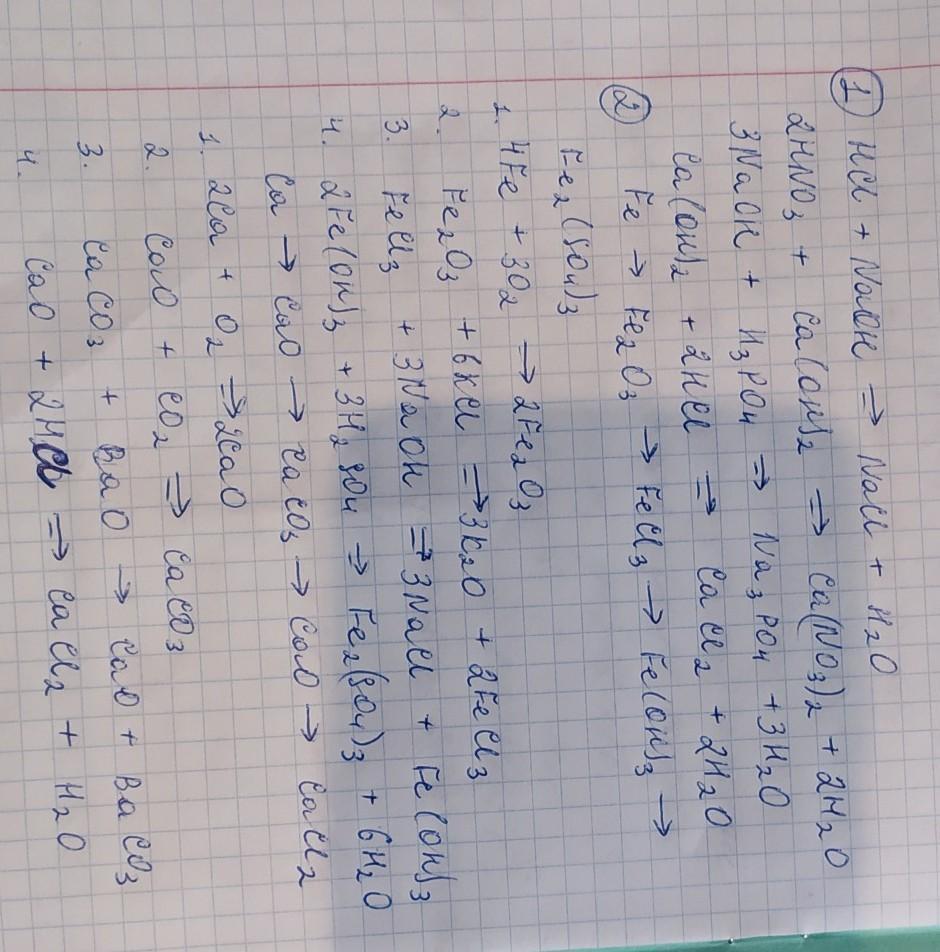 ① HCl + NaOH ⇒ NaCl + H₂O
2HNO₃ + Ca(OH)₂ ⇒ Ca(NO₃)₂ + 2H₂O
3NaOH + H₃PO₄ ⇒ Na₃PO₄ + 3H₂O
Ca(OH)₂ + 2HCl ⇒ CaCl₂ + 2H₂O
② Fe → Fe₂O₃ → FeCl₃ → Fe(OH)₃ →
Fe₂(SO₄)₃
1. 4Fe + 3O₂ → 2Fe₂O₃
2. Fe₂O₃ + 6KCl ⇒ 3K₂O + 2FeCl₃
3. FeCl₃ + 3NaOH ⇒ 3NaCl + Fe(OH)₃
4. 2Fe(OH)₃ + 3H₂SO₄ ⇒ Fe₂(SO₄)₃ + 6H₂O
Ca → CaO → CaCO₃ → CaO → CaCl₂
1. 2Ca + O₂ ⇒ 2CaO
2. CaO + CO₂ ⇒ CaCO₃
3. CaCO₃ + BaO → CaO + BaCO₃
4. CaO + 2HCl ⇒ CaCl₂ + H₂O